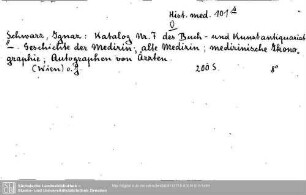 Hist. med. 101 Δ
Q
Schwarz, Ignaz: Katalog Nr. 7 des Buch- und Kunstantiquariat
–. Geschichte der Medizin; alte Medizin; medizinische Ikono-
graphie; Autographen von Ärzten.
(Wien) o. J. 200 S. 8°
Sächsische Landesbibliothek –
Staats- und Universitätsbibliothek Dresden